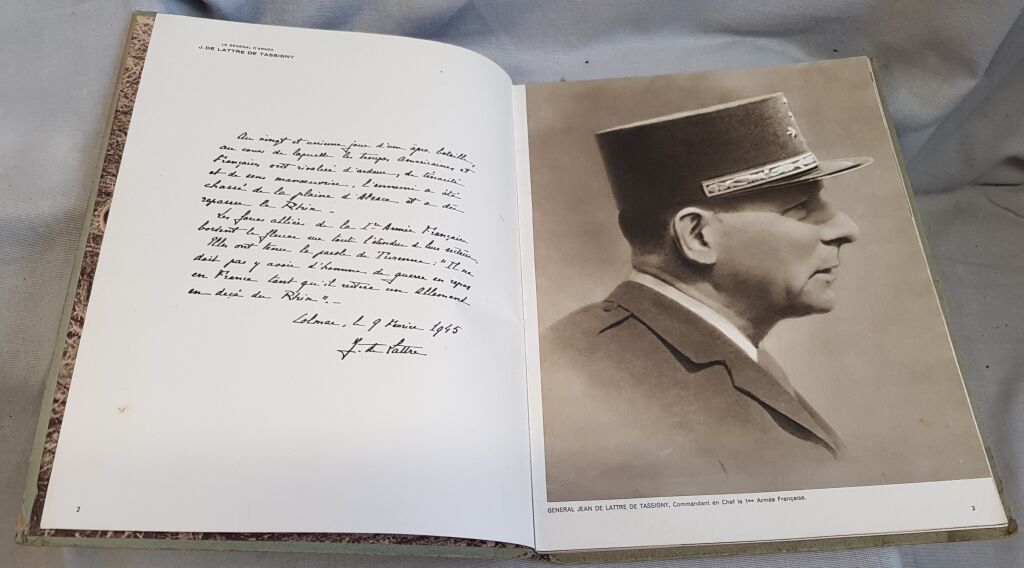 LE GÉNÉRAL D'ARMÉE
J. DE LATTRE DE TASSIGNY
Au vingt et unième jour d'une âpre bataille,
au cours de laquelle les troupes Américaines et
Françaises ont rivalisé d'ardeur, de ténacité
et de sens manoeuvrier, l'ennemi a été
chassé de la plaine d'Alsace et a dû
repasser le Rhin.
Les forces alliées de la 1ère Armée Française
bordent le fleuve sur toute l'étendue de leur secteur.
Elles ont tenu la parole de Turenne : "Il ne
doit pas y avoir d'homme de guerre en repos
en France tant qu'il restera un Allemand
en deçà du Rhin".
Colmar, le 9 Février 1945
J. de Lattre
2
GÉNÉRAL JEAN DE LATTRE DE TASSIGNY, Commandant en Chef la 1ère Armée Française.
3